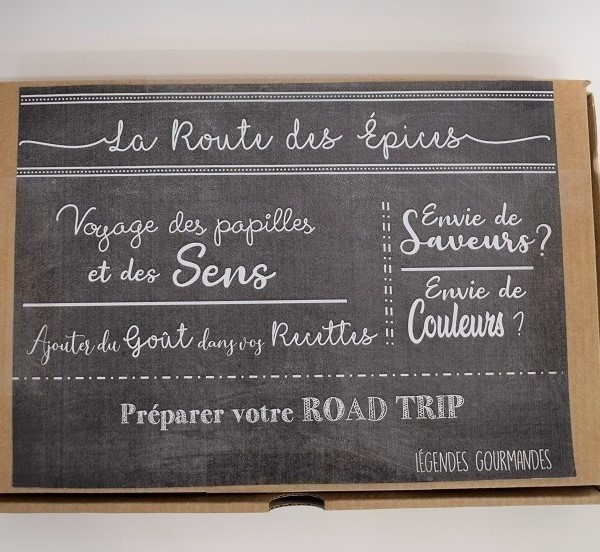 La Route des Épices
Voyage des papilles
et des Sens
Ajouter du Goût dans vos Recettes
Envie de
Saveurs ?
Envie de
Couleurs ?
Préparer votre ROAD TRIP
LÉGENDES GOURMANDES